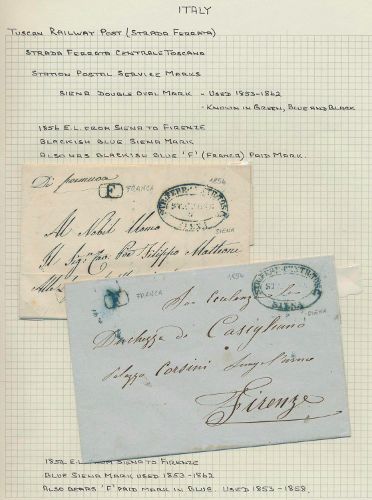 ITALY
TUSCAN RAILWAY POST (STRADA FERRATA)
STRADA FERRATA CENTRALE TOSCANA
STATION POSTAL SERVICE MARKS
SIENA DOUBLE OVAL MARK - USED 1853-1862
- KNOWN IN GREEN, BLUE AND BLACK
1856 E.L. FROM SIENA TO FIRENZE
BLACKISH BLUE SIENA MARK
ALSO HAS BLACKISH BLUE 'F' (FRANCA) PAID MARK.
Di premura
F
FRANCA
1856
SIENA
SIENA
Al Nobil Uomo
Il Sigr. Cav. Filippo
1854
FRANCA
SIENA
SIENA
Sua Eccellenza
Duchessa di Casigliano
Palazzo Corsini Lung'Arno
Firenze
E.L. FROM SIENA TO FIRENZE
BLUE SIENA MARK USED 1853-1862
ALSO BEARS 'F' PAID MARK IN BLUE. USED 1853-1858.